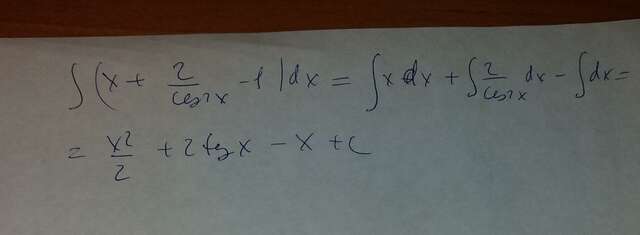 ∫(x + 2/cos²x - 1)dx = ∫x dx + ∫2/cos²x dx - ∫dx =
= x²/2 + 2tgx - x + C